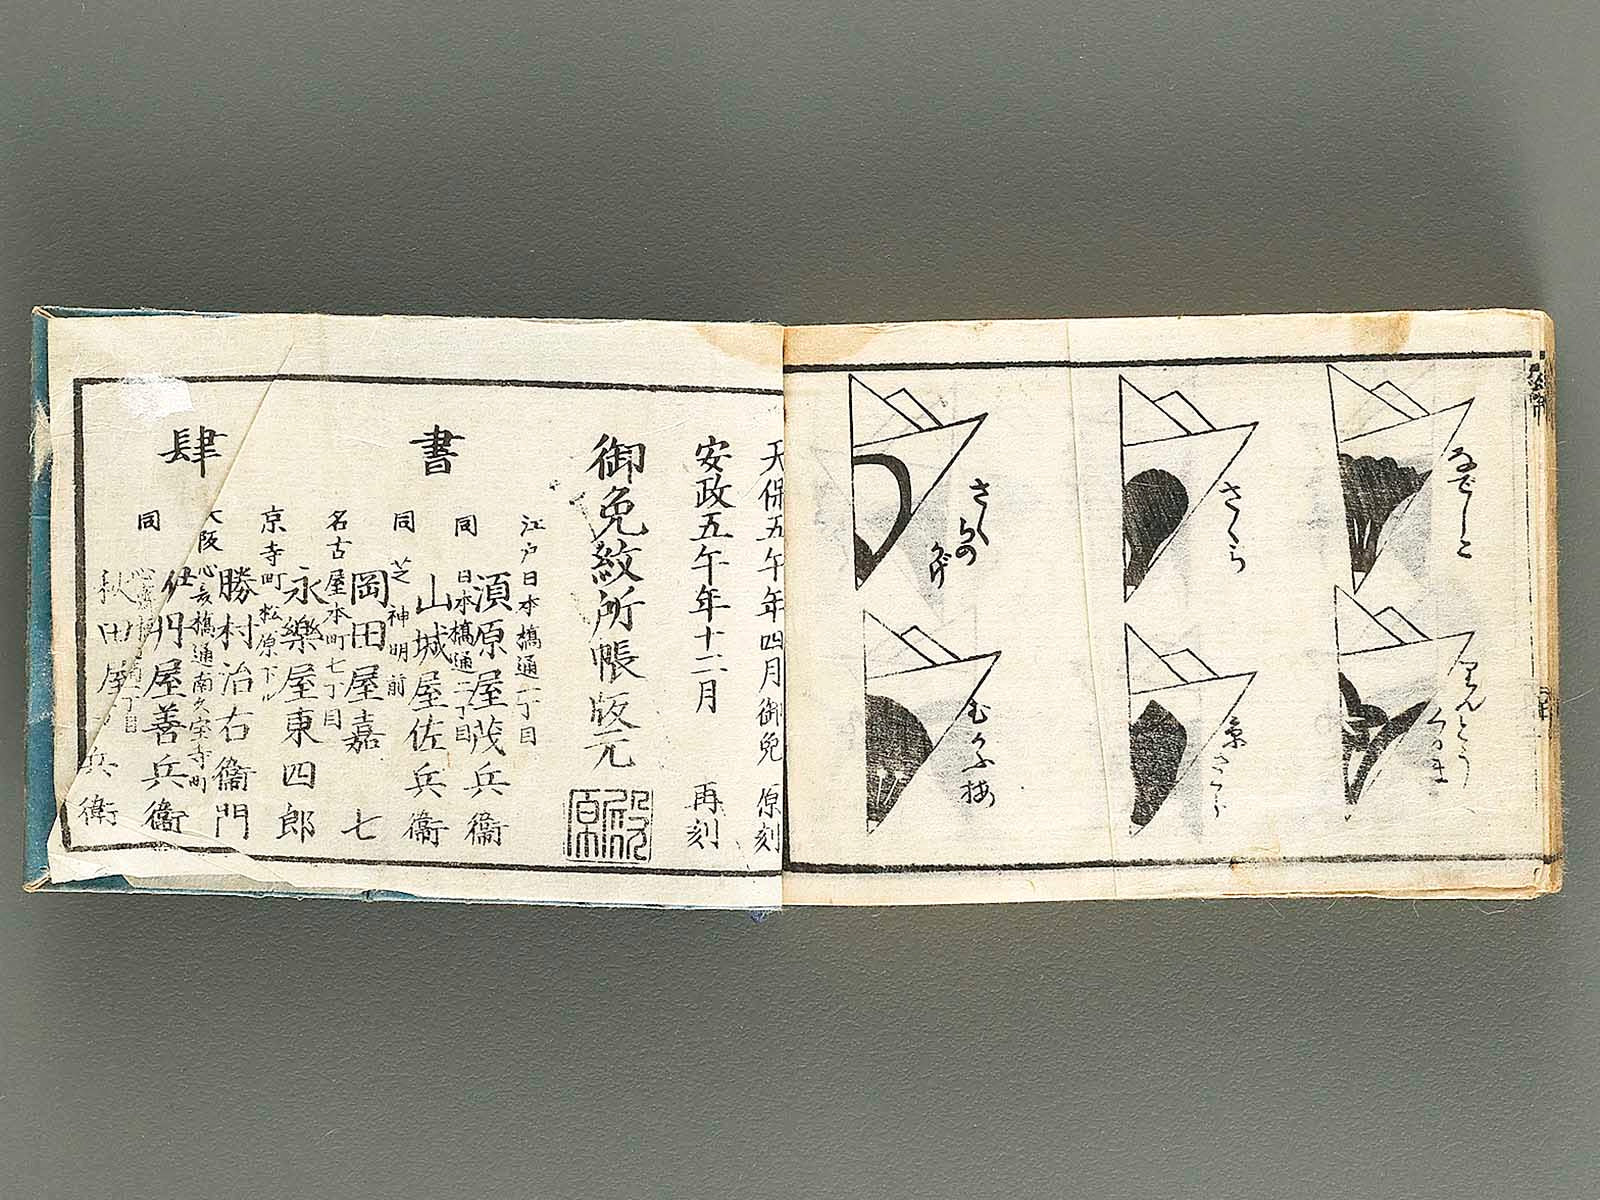 なでしこ
りんとう
くるま
さくら
京さくら
さくらの
かげ
むかふ梅
天保五午年四月御免 原刻
安政五午年十二月 再刻
御免紋所帳版元
書
肆
江戸日本橋通一丁目
須原屋茂兵衞
同 日本橋通二丁目
山城屋佐兵衞
同 芝神明前
岡田屋嘉七
名古屋本町七丁目
永樂屋東四郎
京寺町松原下ル
勝村治右衞門
大阪心斎橋通南久宝寺町
伊丹屋善兵衞
同
秋田屋
兵衛